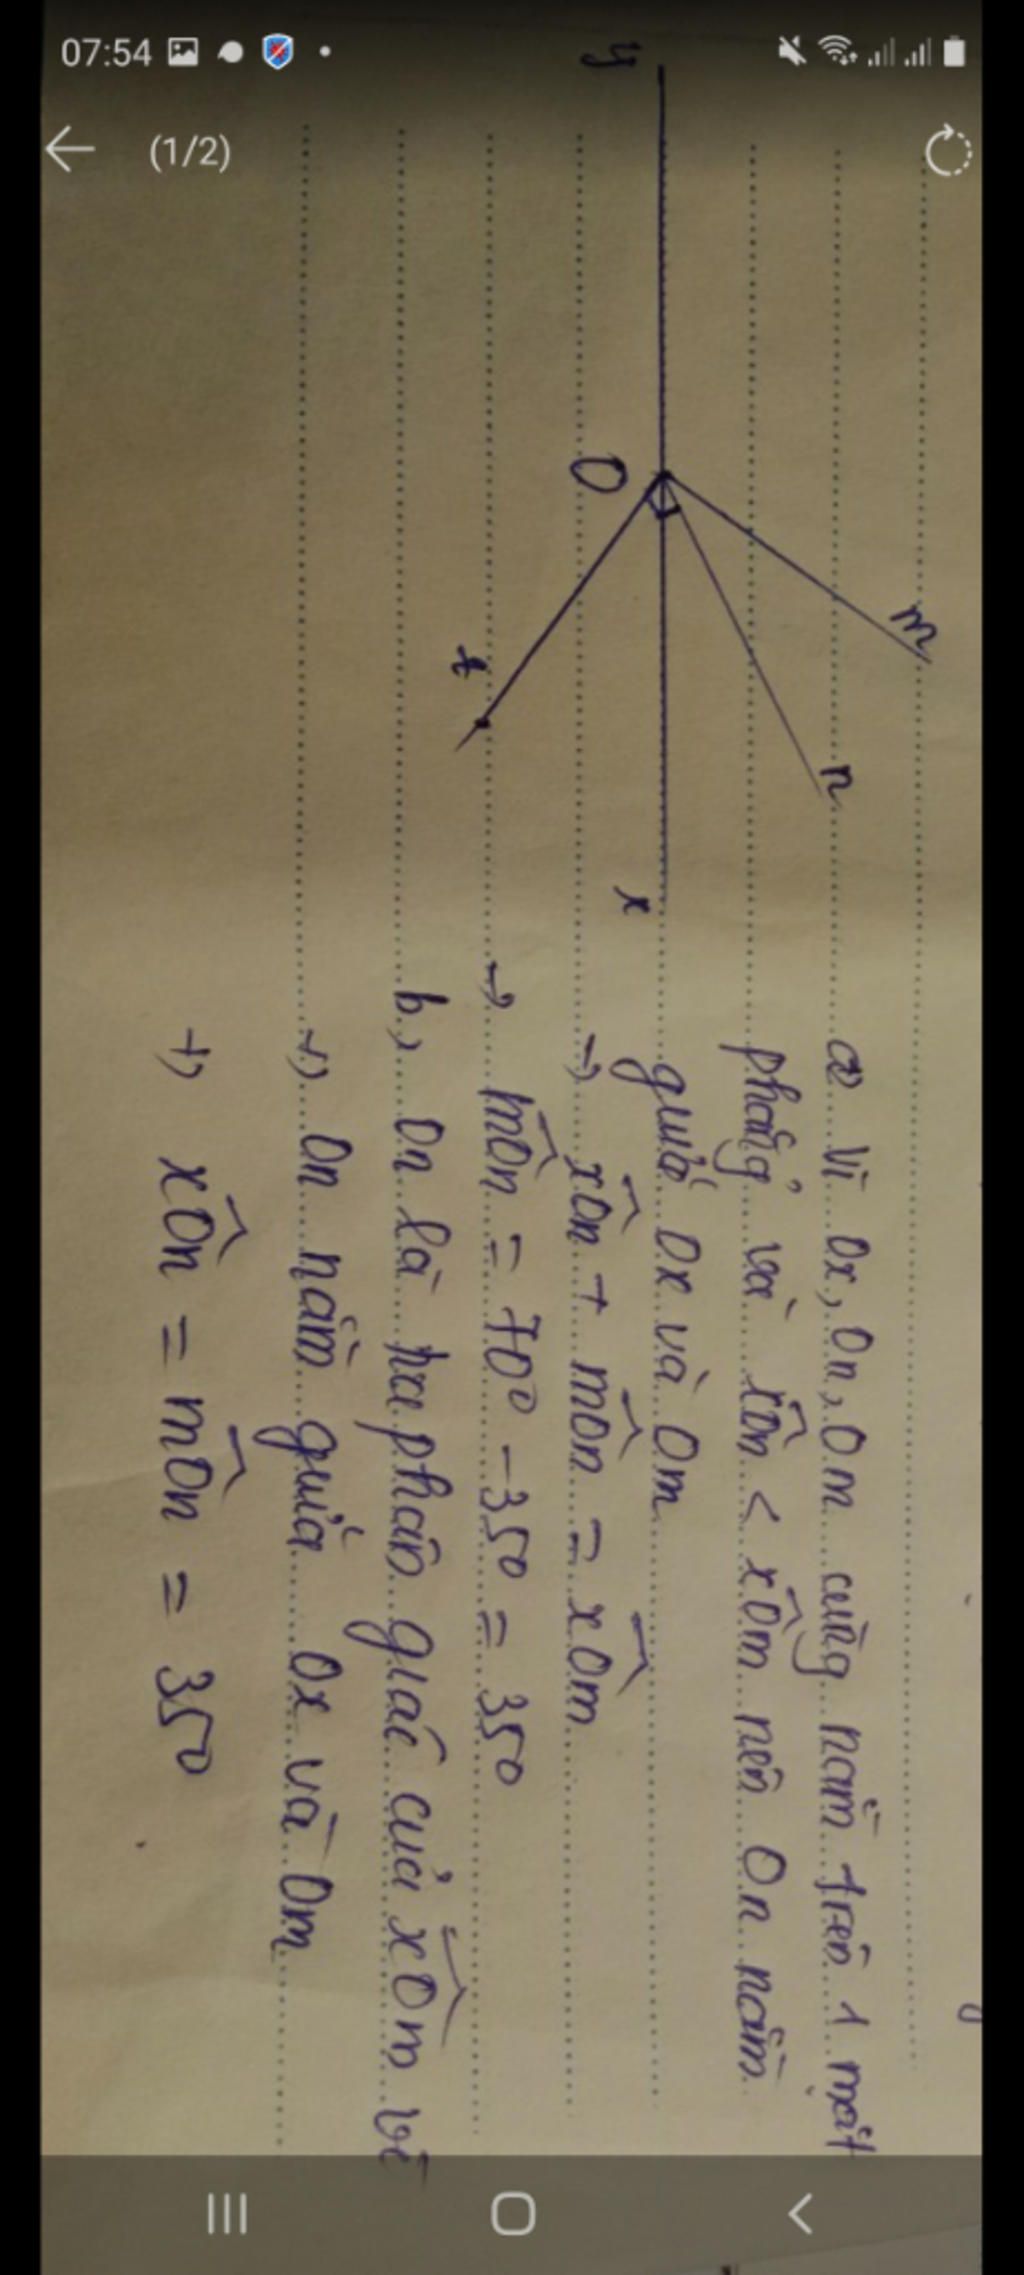 07:54
(1/2)
y
O
m
n
t
x
a, Vì Ox, On, Om cùng nằm trên 1 mặt
phẳng và xOn < xOm nên On nằm
giữa Ox và Om
→ xOn + mOn = xOm
→ mOn = 70° - 35° = 35°
b, On là tia phân giác của xOm vì
+, On nằm giữa Ox và Om
+, xOn = mOn = 35°